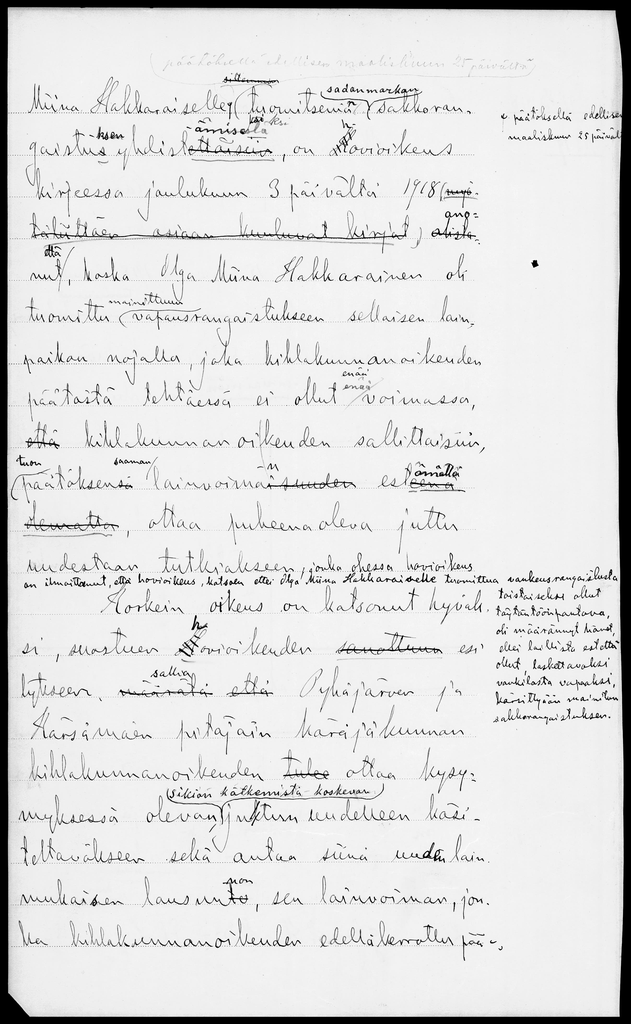 (päätöksellä edellisen maaliskuun 25 päivältä)
Miina Hakkaraiselle tuomitsemia sadanmarkan sakkoran-
gaistuksen yhdistämiseksi, on hovioikeus
× päätöksellä edellisen
maaliskuun 25 päivält
kirjeessä joulukuun 3 päivältä 1918 (myö-
täliittäen asiaan kuuluvat kirjat) ano-
nut, että, koska Olga Miina Hakkarainen oli
tuomittu mainittuun vapausrangaistukseen sellaisen lain-
paikan nojalla, joka kihlakunnanoikeuden
päätöstä tehtäessä ei ollut enää voimassa,
että kihlakunnanoikeuden sallittaisiin,
tuon päätöksen saaman lainvoiman estämättä
olematta, ottaa puheenaoleva juttu
uudestaan tutkiakseen, jonka ohessa hovioikeus
on ilmoittanut, että hovioikeus, katsoen ettei Olga Miina Hakkaraiselle tuomittua vankeusrangaistusta
toistaiseksi ollut
täytäntöönpantava,
oli määrännyt hänet,
ellei laillista estettä
ollut, laskettavaksi
vankilasta vapaaksi,
kärsittyään mainitun
sakkorangaistuksen.
Korkein oikeus on katsonut hyväk-
si, suostuen hovioikeuden sanottuun esi-
tykseen, määrätä että sallia Pyhäjärven ja
Kärsämäen pitäjäin käräjäkunnan
kihlakunnanoikeuden tulee ottaa kysy-
myksessä olevan sikiön kätkemistä koskevan jutun uudelleen käsi-
teltäväkseen sekä antaa siinä uuden lain-
mukaisen lausunnon, sen lainvoiman, jon-
ka kihlakunnanoikeuden edelläkerrottu pää-